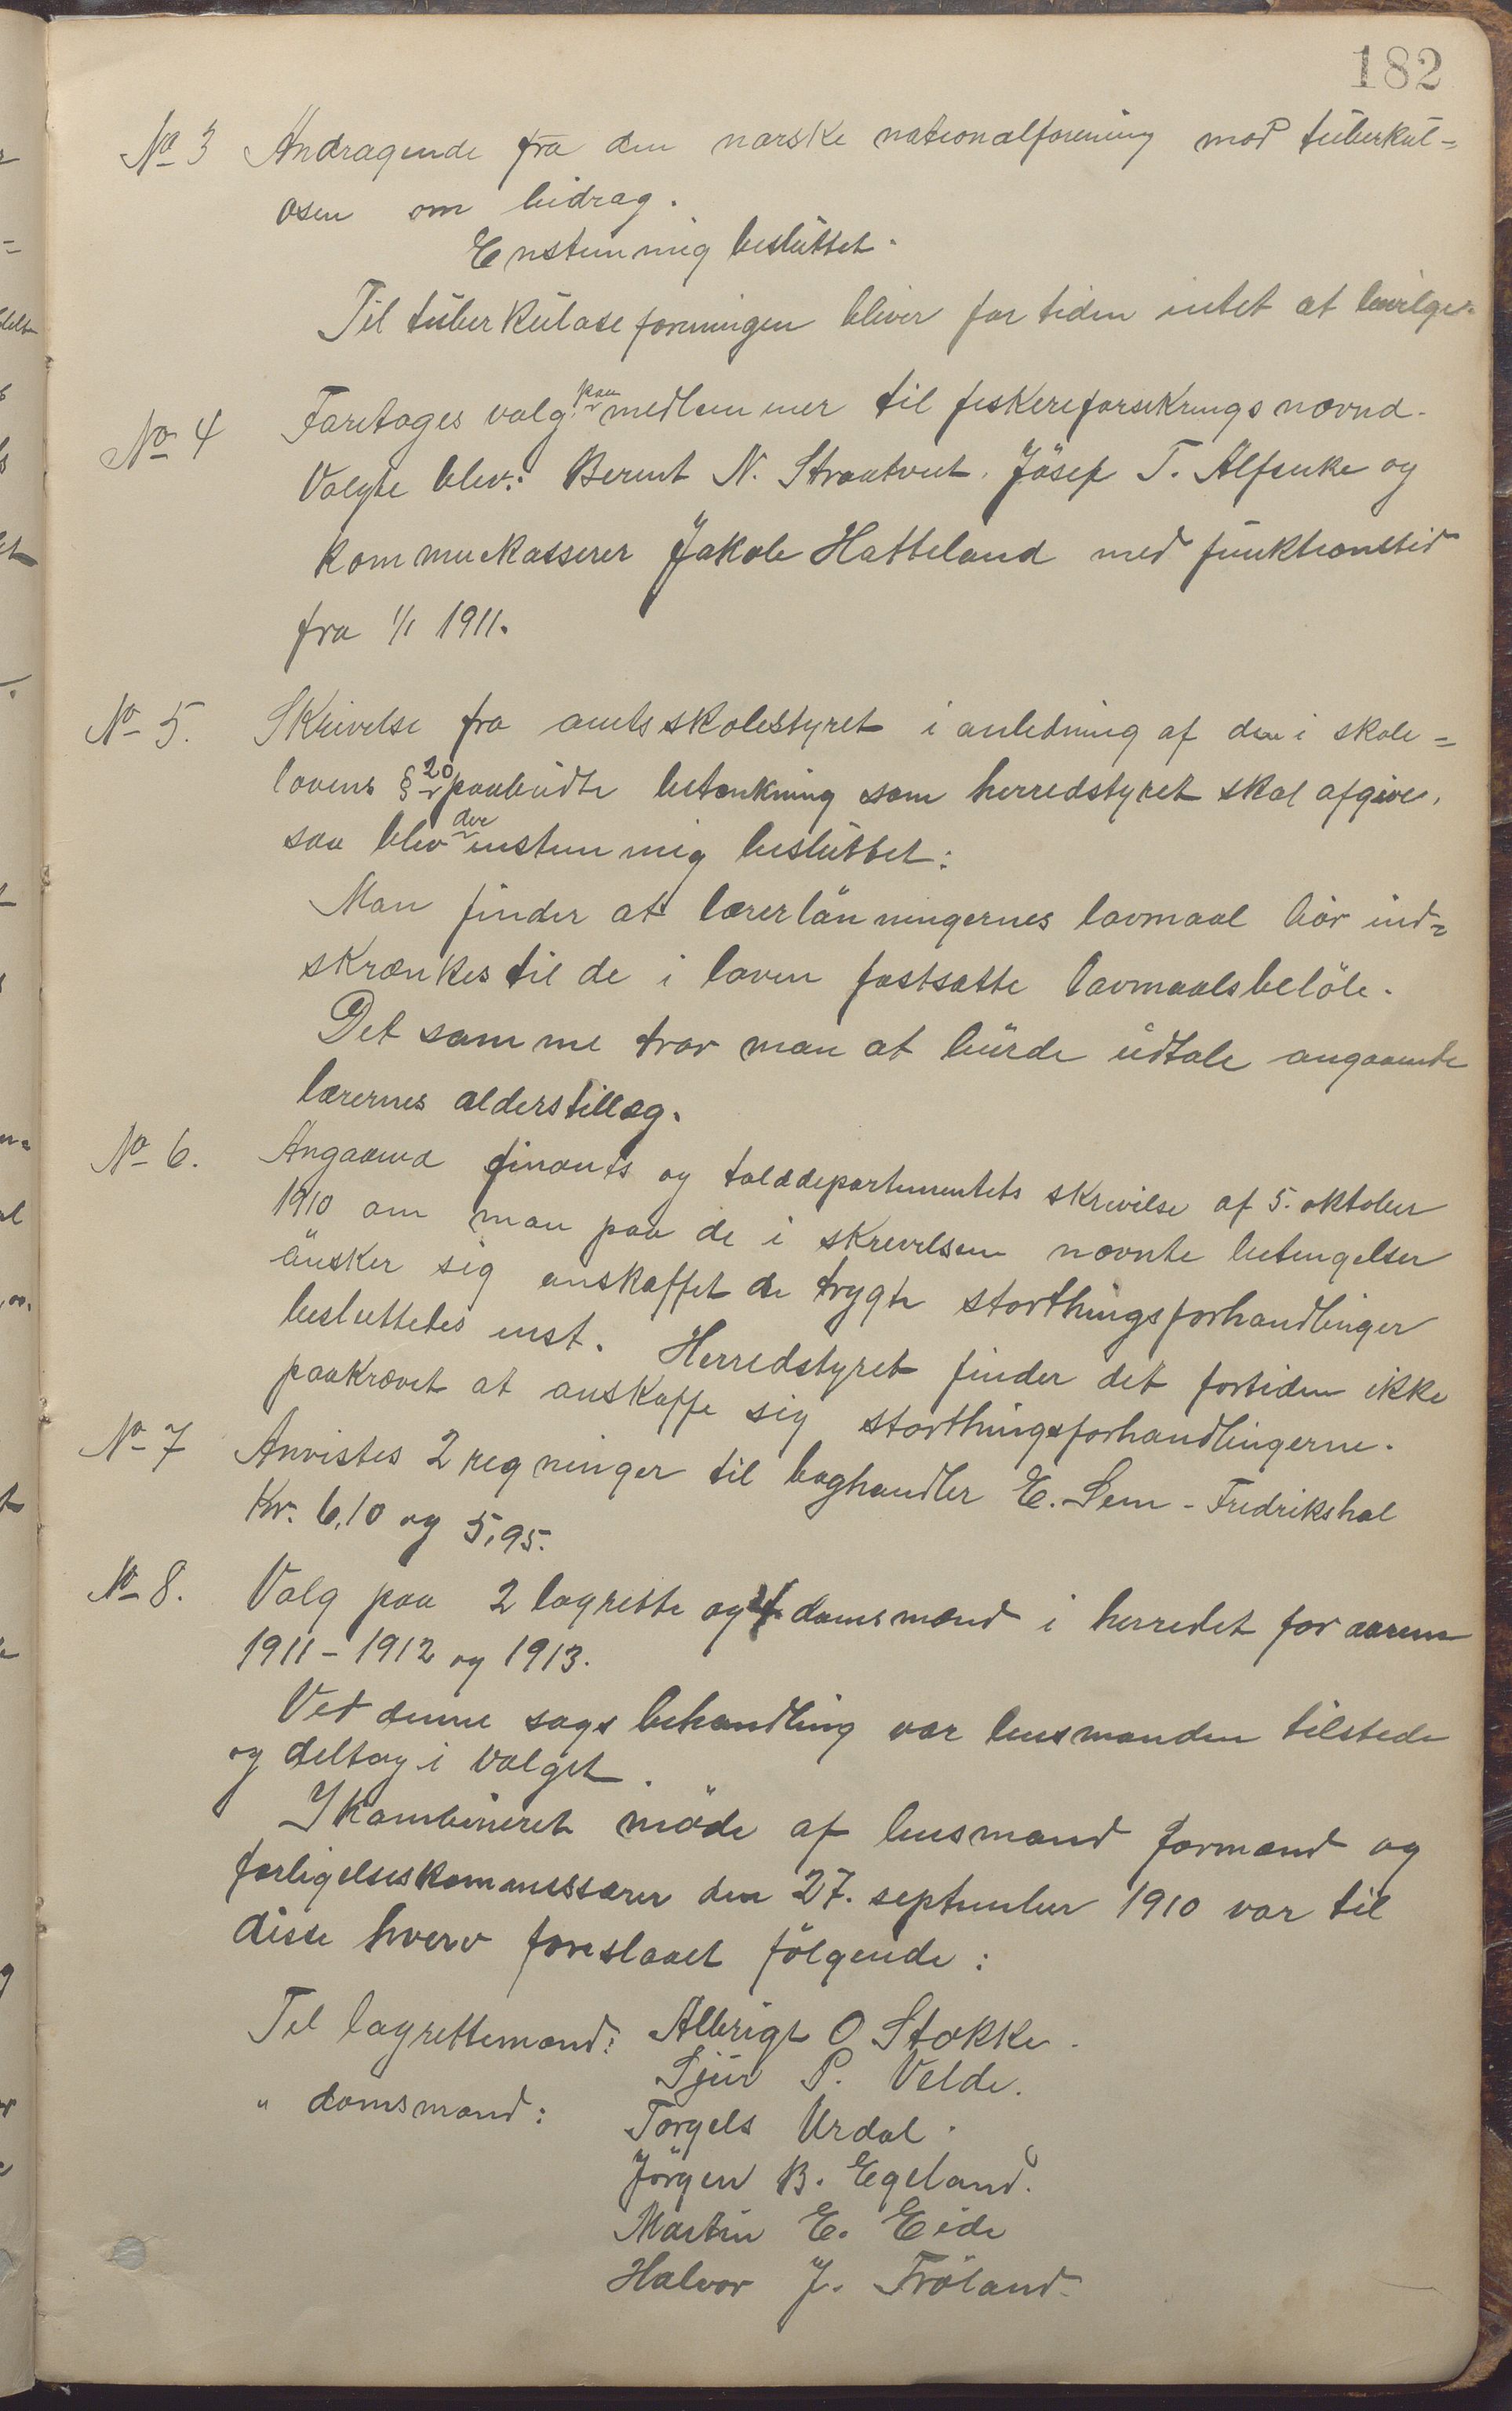 182
No 3 Andragende fra den norske nationalforening mod tuberkul=
osen om bidrag.
Enstemmig besluttet.
Til tuberkuloseforeningen bliver for tiden intet at bevilge.
No 4 Foretages valg paa medlemmer til fiskereforsikringsnævnd.
Valgte blev: Berent N. Straatveit, Josef T. Alfsvike og
kommunekasserer Jakob Hatteland med funktionstid
fra 1/1 1911.
No 5. Skrivelse fra amtsskolestyret i anledning af den i skole=
lovens § 20 paabudte betænkning som herredstyret skal afgive,
saa blev der enstemmig besluttet:
Man finder at lærerlønningernes lavmaal bør ind=
skrænkes til de i loven fastsatte lavmaalsbeløb.
Det samme tror man at burde udtale angaaende
lærernes alderstillæg.
No 6. Angaaend finants og tolddepartementets skrivelse af 5. oktober
1910 om man paa de i skrivelsen nævnte betingelser
ønsker sig anskaffet de trygte storthingsforhandlinger
besluttedes enst. Herredstyret finder det fortiden ikke
paakrævet at anskaffe sig storthingsforhandlingerne.
No 7 Anvistes 2 regninger til boghandler E. Sem - Fredrikshal
Kr. 6,10 og 5,95.
No 8. Valg paa 2 lagrette og 4 domsmænd i herredet for aarene
1911 - 1912 og 1913.
Ved denne sags behandling var lensmanden tilstede
og deltog i valget.
I kombineret møde af lensmand formænd og
forligelseskommissærer den 27. september 1910 var til
disse hverv foreslaaet følgende:
Til lagrettemænd: Albrigt O Stokke.
Sjur P. Velde.
" domsmænd: Torgels Urdal.
Jørgen B. Egeland.
Martin E. Eide
Halvor J. Frøland